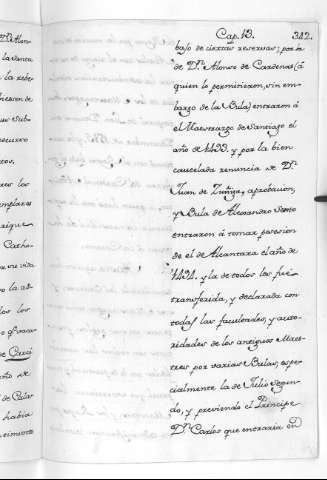 Cap. 13. 312.
bajo de ciertas reservas; por la
de Dn. Alonso de Cardenas (á
quien lo permitieron, sin em-
bargo de la Bula) entraron á
el Maestrazgo de Santiago el
año de 1499, y por la bien
cautelada renuncia de Dn.
Juan de Zuñiga, aprobacion,
y Bula de Alexandro Sexto
entraron á tomar posesion
de el de Alcantara el año de
1494. y la de todos les fué
transferida, y declarada con
todas las facultades, y auto-
ridades de los antiguos Maes-
tres por varias Bulas, espe-
cialmente la de Julio Segun-
do, y previendo el Principe
Dn. Carlos que entraria en
Dn. Alon-
la Santa
la rebe-
recurso
los
Catho-
vida
la ab-
los los
año de
de Calat
habia